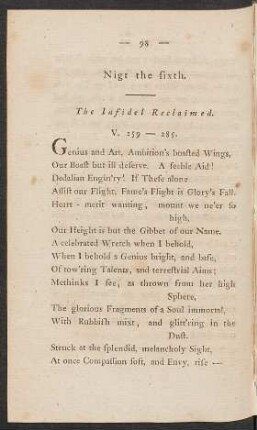 — 98 —
Nigt the ſixth.
The Infidel Reclaimed.
V. 259 — 285.
Genius and Art, Ambition's boaſted Wings,
Our Boaſt but ill deſerve. A feeble Aid!
Dedalian Engin'ry! If Theſe alone
Aſſiſt our Flight, Fame's Flight is Glory's Fall.
Heart - merit wanting, mount we ne'er ſo
high,
Our Height is but the Gibbet of our Name.
A celebrated Wretch when I behold,
When I behold a Genius bright, and baſe,
Of tow'ring Talents, and terreſtrial Aims;
Methinks I ſee, as thrown from her high
Sphere,
The glorious Fragments of a Soul immortal,
With Rubbiſh mixt, and glitt'ring in the
Duſt.
Struck at the ſplendid, melancholy Sight,
At once Compaſſion ſoft, and Envy, riſe —